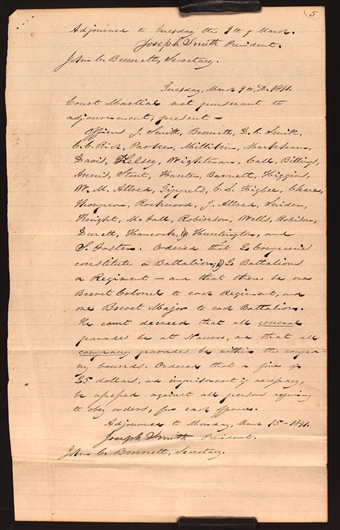 5
Adjourned to Tuesday the 9th of March.
Joseph Smith President.
John C. Bennett, Secretary.
Tuesday, March 9th, A.D. 1841.
Court Martial met pursuant to
adjournment, present —
Officers J. Smith, Bennett, D. C. Smith,
C. C. Rich, Parker, Milliken, Marksham,
Davis, Kelsey, Wightman, Call, Billings,
Annis, Stout, Hunter, Barnett, Higgins,
W. M. Allred, Tippets, C. L. Higbee, Chase,
Thompson, Rockwood, J. Allred, Snider,
Knight, McFall, Robinson, Wells, Robison,
Durell, Hancock, Huntington, and
S. Foster. Ordered that 2 Companies
constitute a Battalion, 2 Battalions
a Regiment — and that there be one
Brevet Colonel to each Regiment, and
one Brevet Major to each Battalion.
The court decreed that all general
parades be at Nauvoo, and that all
company parades be within the company
bounds. Ordered that a fine of
25 dollars, and imprisonment if necessary,
be assessed against all persons refusing
to obey orders, for each offence.
Adjourned to Monday, March 15 – 1841.
Joseph Smith President.
John C. Bennett, Secretary.